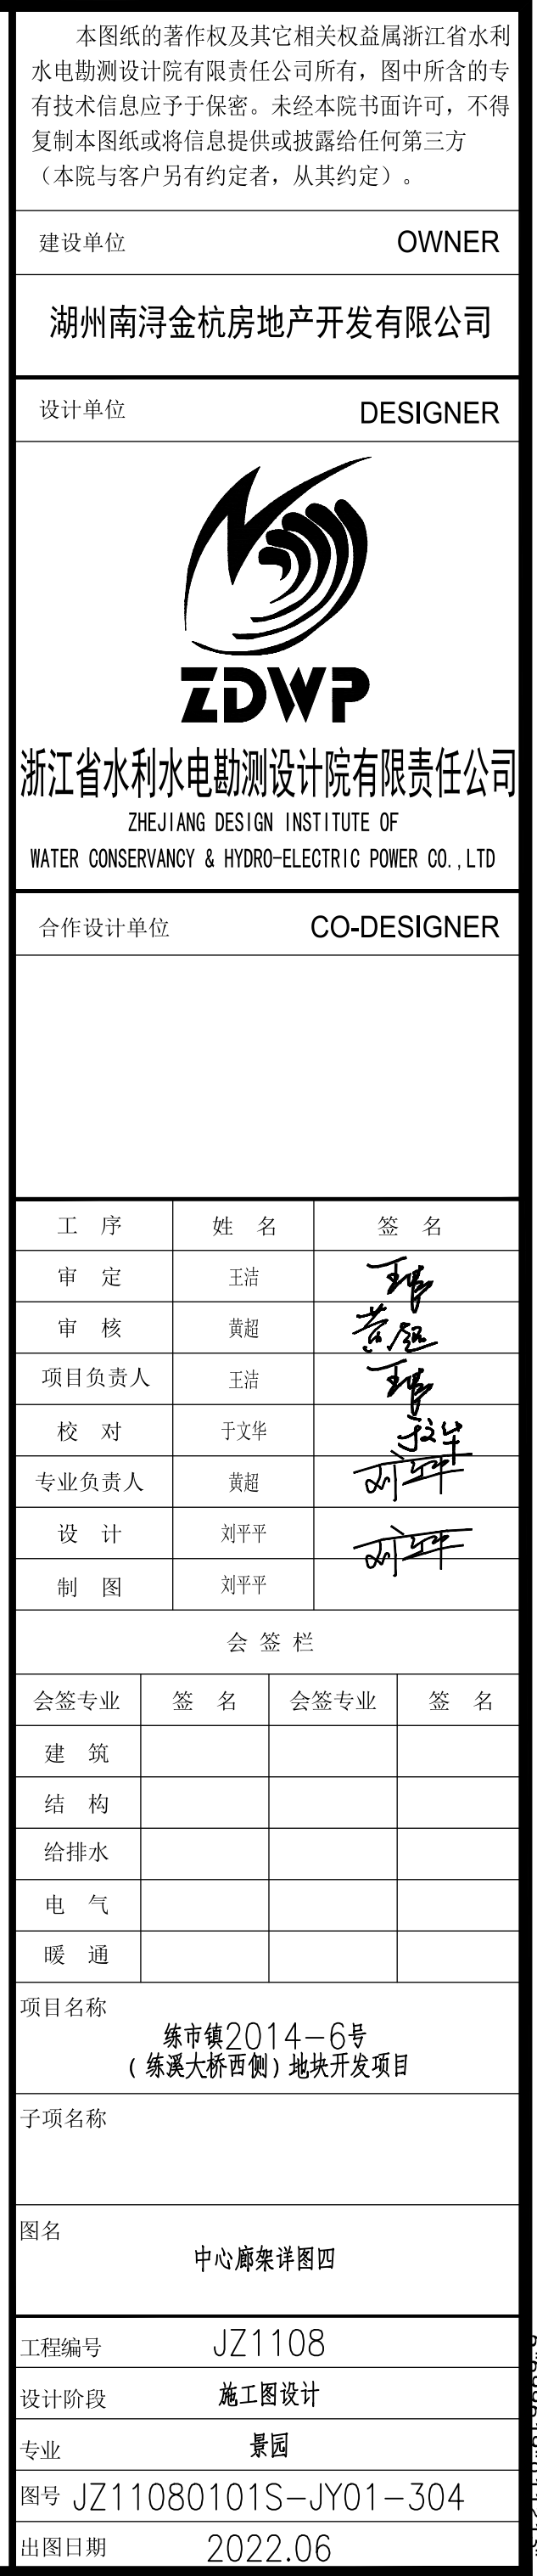 本图纸的著作权及其它相关权益属浙江省水利
水电勘测设计院有限责任公司所有，图中所含的专
有技术信息应予于保密。未经本院书面许可，不得
复制本图纸或将信息提供或披露给任何第三方
（本院与客户另有约定者，从其约定）。
建设单位 OWNER
湖州南浔金杭房地产开发有限公司
设计单位 DESIGNER
ZDWP
浙江省水利水电勘测设计院有限责任公司
ZHEJIANG DESIGN INSTITUTE OF
WATER CONSERVANCY & HYDRO-ELECTRIC POWER CO.,LTD
合作设计单位 CO-DESIGNER
工 序 姓 名 签 名
审 定 王洁 王洁
审 核 黄超 黄超
项目负责人 王洁 王洁
校 对 于文华 于文华
专业负责人 黄超 刘平平
设 计 刘平平 刘平平
制 图 刘平平
会 签 栏
会签专业 签 名 会签专业 签 名
建 筑
结 构
给排水
电 气
暖 通
项目名称
练市镇2014-6号
（练溪大桥西侧）地块开发项目
子项名称
图名
中心廊架详图四
工程编号 JZ1108
设计阶段 施工图设计
专业 景园
图号 JZ11080101S-JY01-304
出图日期 2022.06